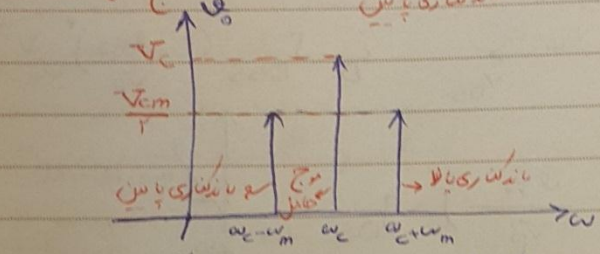 باند کناری پایین
V₀
V_c
V_cm / ۲
باند کناری پایین ← موج حامل → باند کناری بالا
ω_c-ω_m ω_c ω_c+ω_m ω